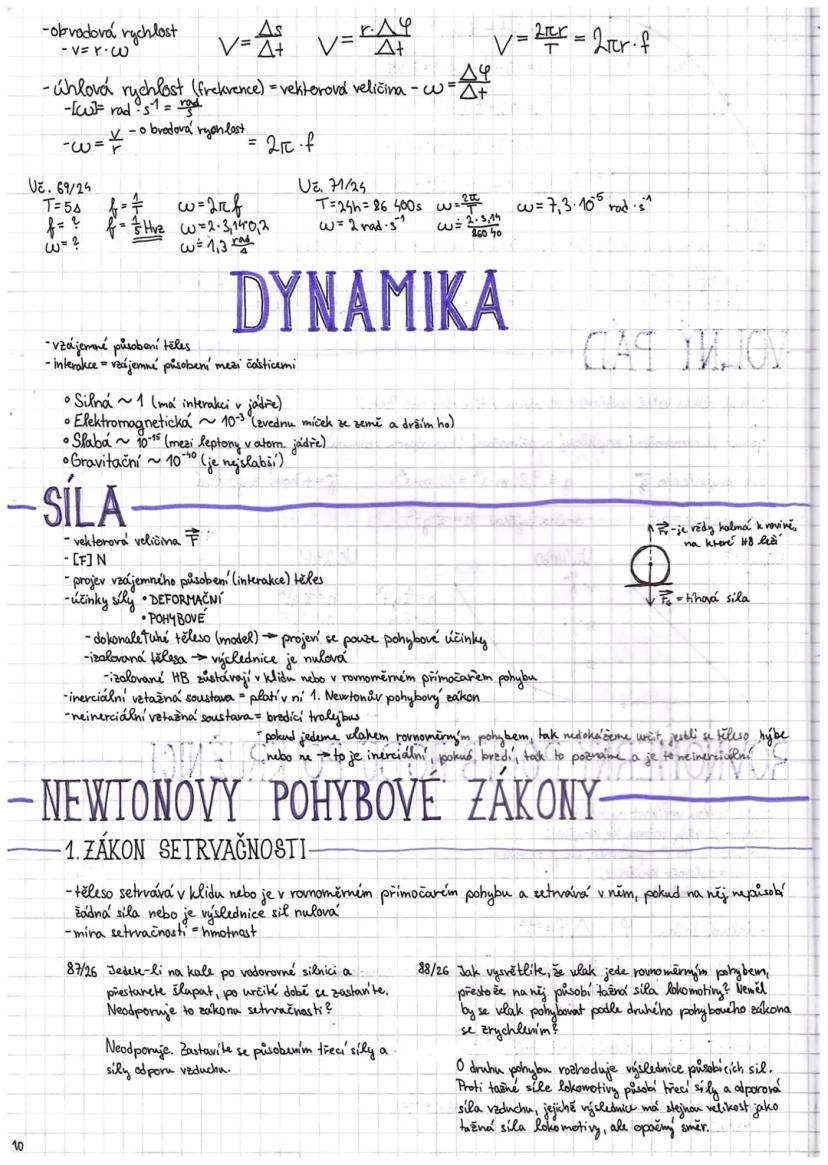 -obvodová rychlost
- v= r · ω
V = Δs/Δt   V = r·Δφ/Δt   V = 2πr/T = 2πr·f
- úhlová rychlost (frekvence) = vektorová veličina - ω = Δφ/Δt
-[ω]= rad · s⁻¹ = rad/s
-ω = v/r - obvodová rychlost = 2π · f
Uč. 69/24
T=5s   f = 1/T   ω=2πf
f= ?   f = 1/5 Hz   ω=2·3,14·0,2
ω= ?   ω≐1,3 rad/s
Uč. 71/24
T=24h=86 400s   ω=2π/T   ω=7,3·10⁻⁵ rad·s⁻¹
ω=2 rad·s⁻¹   ω≐ 2·3,14/
DYNAMIKA
- vzájemné působení těles
- interakce = vzájemné působení mezi částicemi
• Silná ~ 1 (má interakci v jádře)
• Elektromagnetická ~ 10⁻³ (zvednu míček ze země a držím ho)
• Slabá ~ 10⁻¹⁵ (mezi leptony v atom. jádře)
• Gravitační ~ 10⁻⁴⁰ (je nejslabší)
SÍLA
- vektorová veličina F⃗
- [F] N
- projev vzájemného působení (interakce) těles
-účinky síly • DEFORMAČNÍ
• POHYBOVÉ
- dokonale tuhé těleso (model) → projeví se pouze pohybové účinky
-izolovaná tělesa → výslednice je nulová
-izolované HB zůstávají v klidu nebo v rovnoměrném přímočarém pohybu
-inerciální vztažná soustava = platí v ní 1. Newtonův pohybový zákon
-neinerciální vztažná soustava = brzdící trolejbus
- pokud jedeme vlakem rovnoměrným pohybem, tak nedokážeme určit, jestli se těleso hýbe
nebo ne → to je inerciální, pokud brzdí, tak to poznáme a je to neinerciální
Fr - je vždy kolmá k rovině,
na které HB leží
= tíhová síla
NEWTONOVY POHYBOVÉ ZÁKONY
1. ZÁKON SETRVAČNOSTI
-těleso setrvává v klidu nebo je v rovnoměrném přímočarém pohybu a setrvává v něm, pokud na něj nepůsobí
žádná síla nebo je výslednice sil nulová
- míra setrvačnosti = hmotnost
87/26 Jedete-li na kole po vodorovné silnici a
přestanete šlapat, po určité době se zastavíte.
Neodporuje to zákonu setrvačnosti?
Neodporuje. Zastavíte se působením třecí síly a
síly odporu vzduchu.
88/26 Jak vysvětlíte, že vlak jede rovnoměrným pohybem,
přestože na něj působí tažná síla lokomotivy? Neměl
by se vlak pohybovat podle druhého pohybového zákona
se zrychlením?
O druhu pohybu rozhoduje výslednice působících sil.
Proti tažné síle lokomotivy působí třecí síly a odporová
síla vzduchu, jejichž výslednice má stejnou velikost jako
tažná síla lokomotivy, ale opačný směr.
10